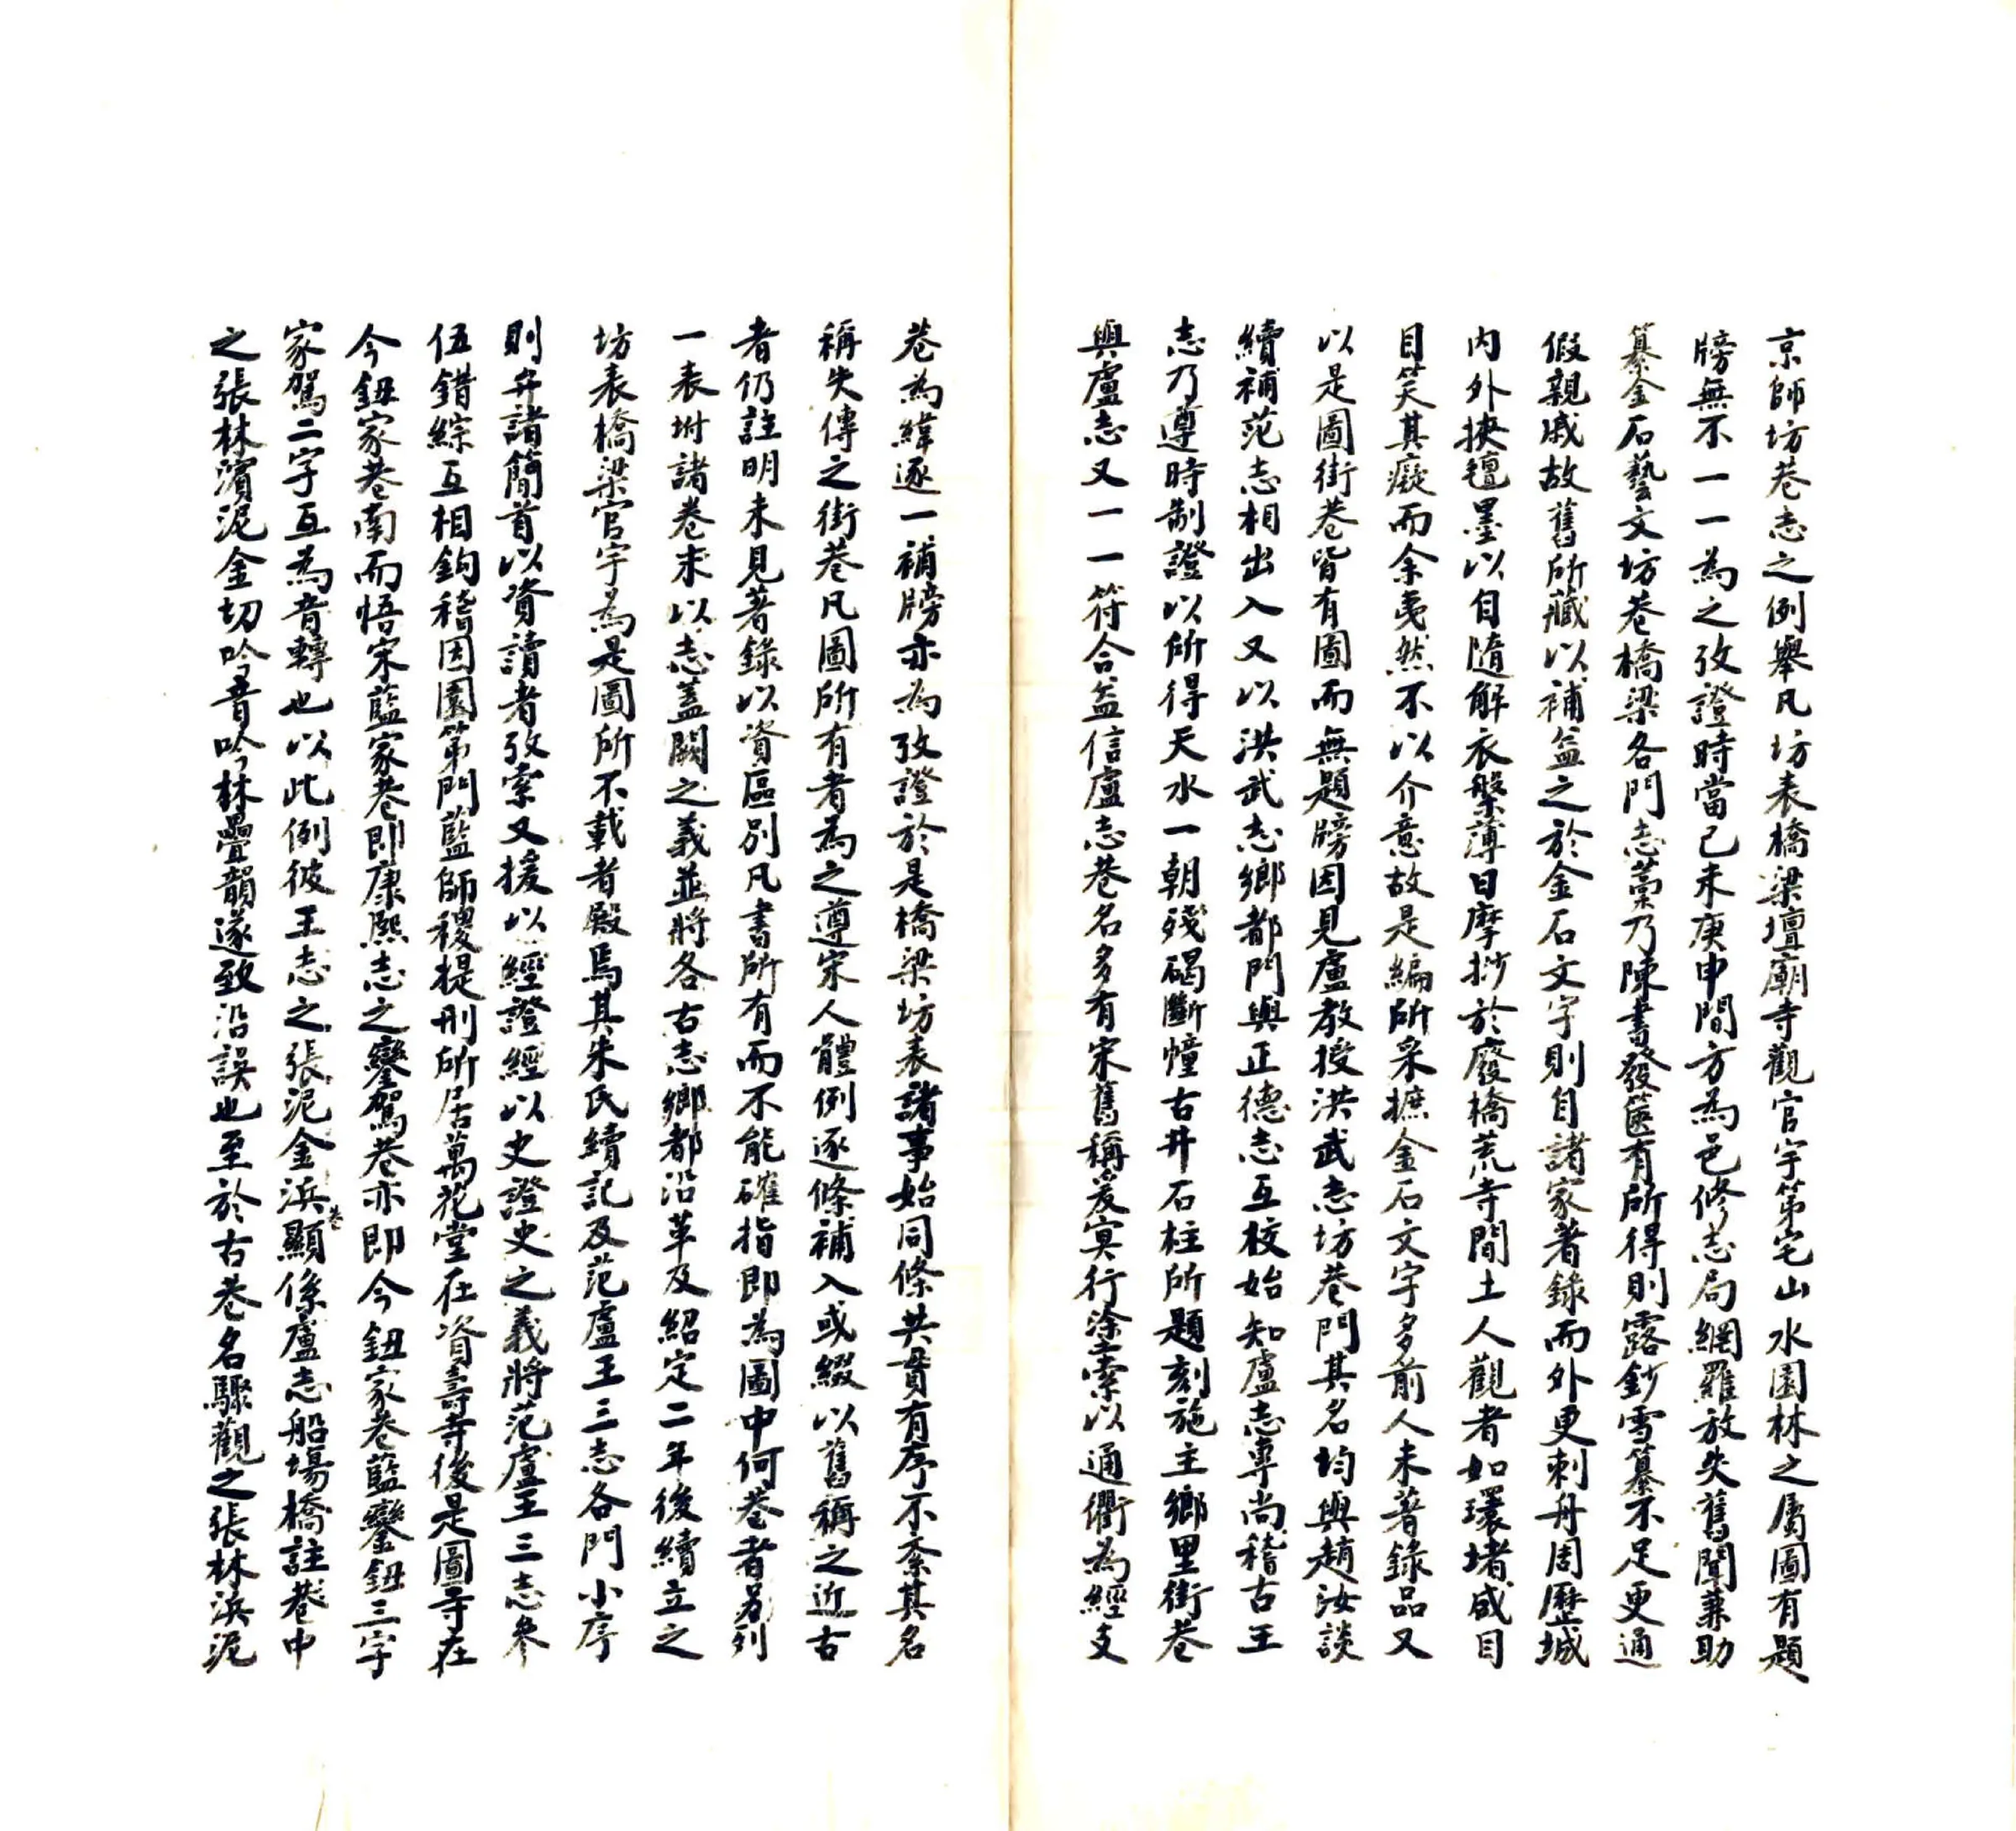 京師坊巷志之例舉凡坊表橋梁壇廟寺觀官宇第宅山水園林之屬圖有題
牓無不一一為之攷證時當己未庚申間方為邑修志局網羅放失舊聞兼助
纂金石藝文坊巷橋梁各門志藁乃陳書發篋有所得則露鈔雪纂不足更通
假親戚故舊所藏以補益之於金石文字則自諸家著錄而外更刺舟周歷城
內外挾氊墨以自隨解衣槃薄日摩挱於廢橋荒寺間土人觀者如環堵咸目
目笑其癡而余夷然不以介意故是編所采摭金石文字多前人未著錄品又
以是圖街巷皆有圖而無題牓因見盧教授洪武志坊巷門其名均與趙汝談
續補范志相出入又以洪武志鄉都門與正德志互校始知盧志專尚稽古王
志乃遵時制證以所得天水一朝殘碣斷幢古井石柱所題刻施主鄉里街巷
與盧志又一一符合益信盧志巷名多有宋舊稱爰冥行涂索以通衢為經支
巷為緯逐一補牓亦為攷證於是橋梁坊表諸事始同條共貫有序不紊其名
稱失傳之街巷凡圖所有者為之遵宋人體例逐條補入或綴以舊稱之近古
者仍註明未見著錄以資區別凡書所有而不能確指即為圖中何巷者另列
一表坿諸卷末以志蓋闕之義並將各古志鄉都沿革及紹定二年後續立之
坊表橋梁官宇為是圖所不載者殿焉其朱氏續記及范盧王三志各門小序
則弁諸簡首以資讀者攷索又援以經證經以史證史之義將范盧王三志參
伍錯綜互相鉤稽因圖第門藍師稷提刑所居萬花堂在資壽寺後是圖寺在
今鈕家巷南而悟宋藍家巷即康熙志之鑾駕巷亦即今鈕家巷藍鑾鈕三字
家駕二字互為音轉也以此例彼王志之張泥金浜巷顯係盧志船場橋註巷中
之張林濱泥金切吟音吟林疊韻遂致沿誤也至於古巷名驟觀之張林浜泥